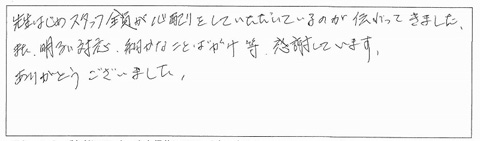 先生はじめスタッフ全員が心配りをしていただいているのが伝わってきました、
又、明るい対応、細かなことばがけ等、感謝しています。
ありがとうございました。